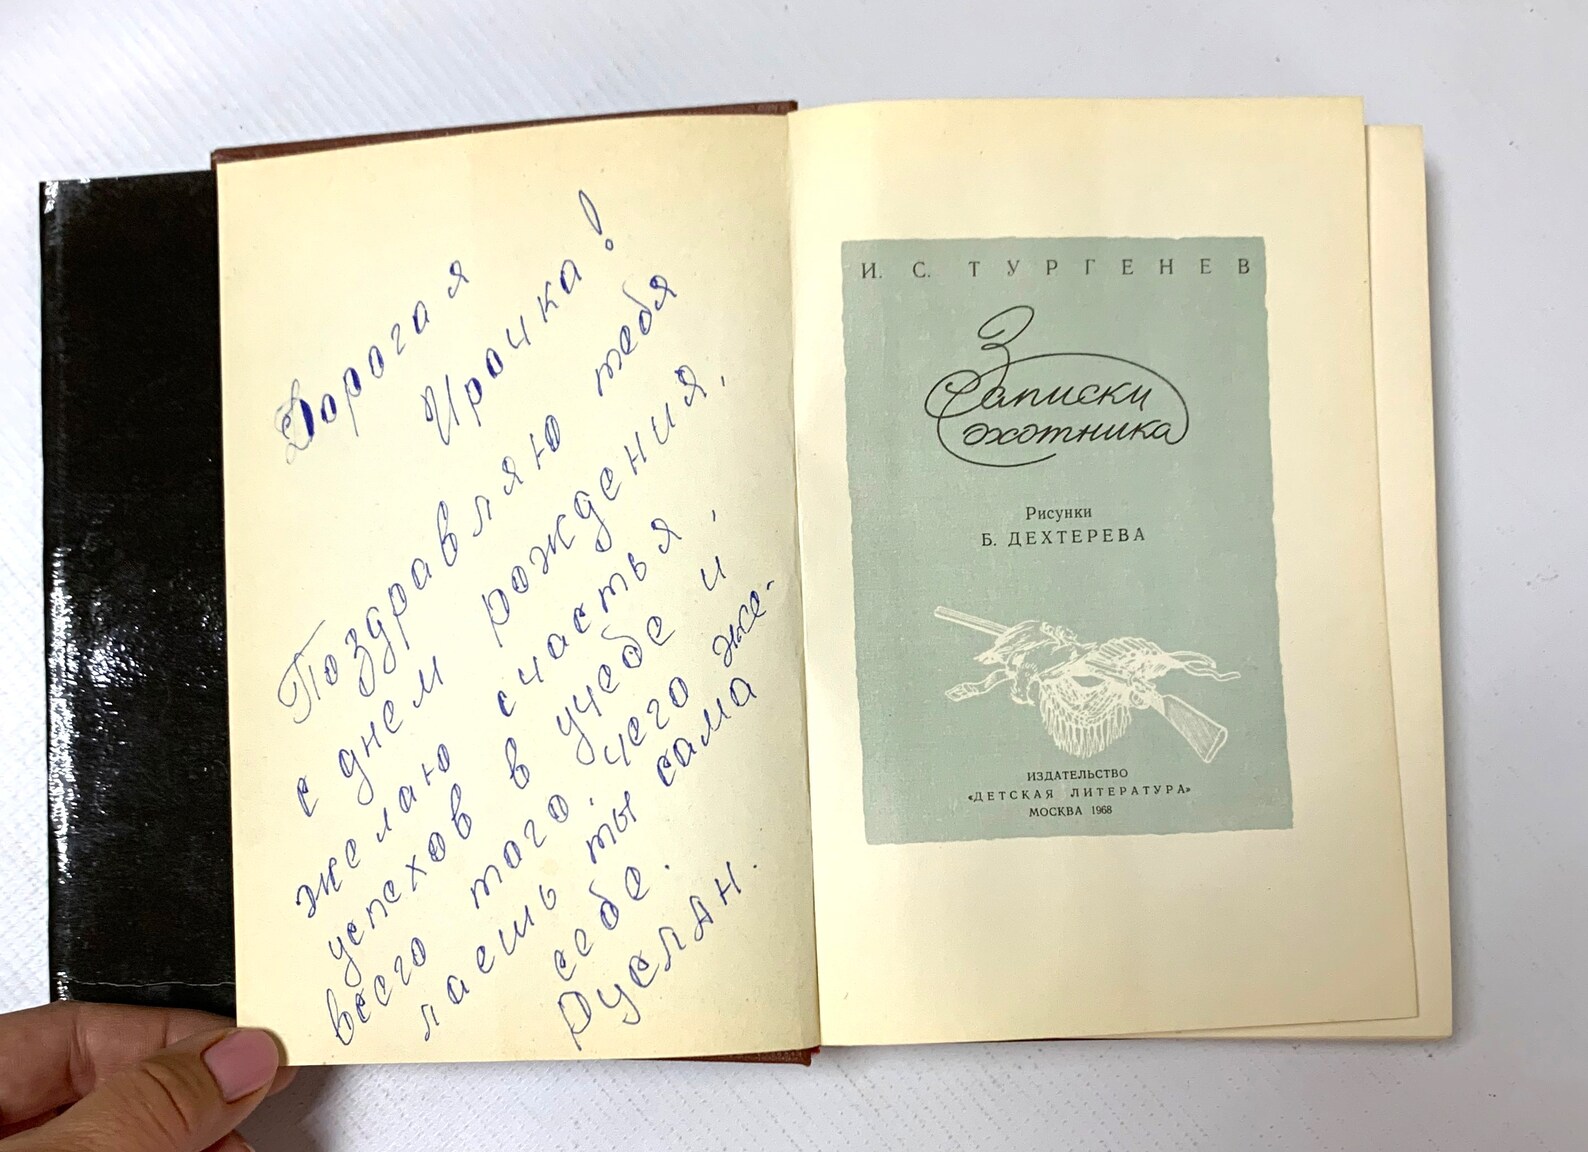 Дорогая
Ирочка!
Поздравляю тебя
с днем рождения,
желаю счастья,
успехов в учебе и
всего того, чего же-
лаешь ты сама
себе.
Руслан.
И. С. ТУРГЕНЕВ
Записки
охотника
Рисунки
Б. ДЕХТЕРЕВА
ИЗДАТЕЛЬСТВО
«ДЕТСКАЯ ЛИТЕРАТУРА»
МОСКВА 1968